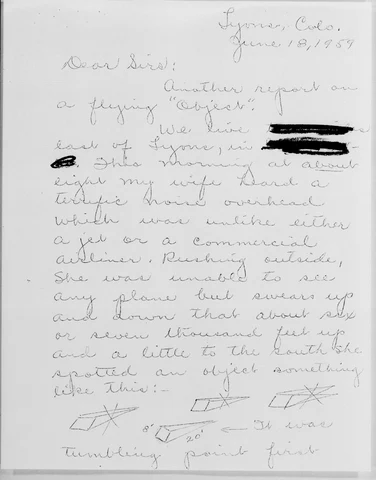 Lyons, Colo.
June 18, 1959
Dear Sirs:
Another report on
a flying "Object".
We live
east of Lyons, in
This morning at about
eight my wife heard a
terrific noise overhead
which was unlike either
a jet or a commercial
airliner. Rushing outside,
she was unable to see
any plane but swears up
and down that about six
or seven thousand feet up
and a little to the south she
spotted an object something
like this:-
8' 20' ← It was
tumbling point first